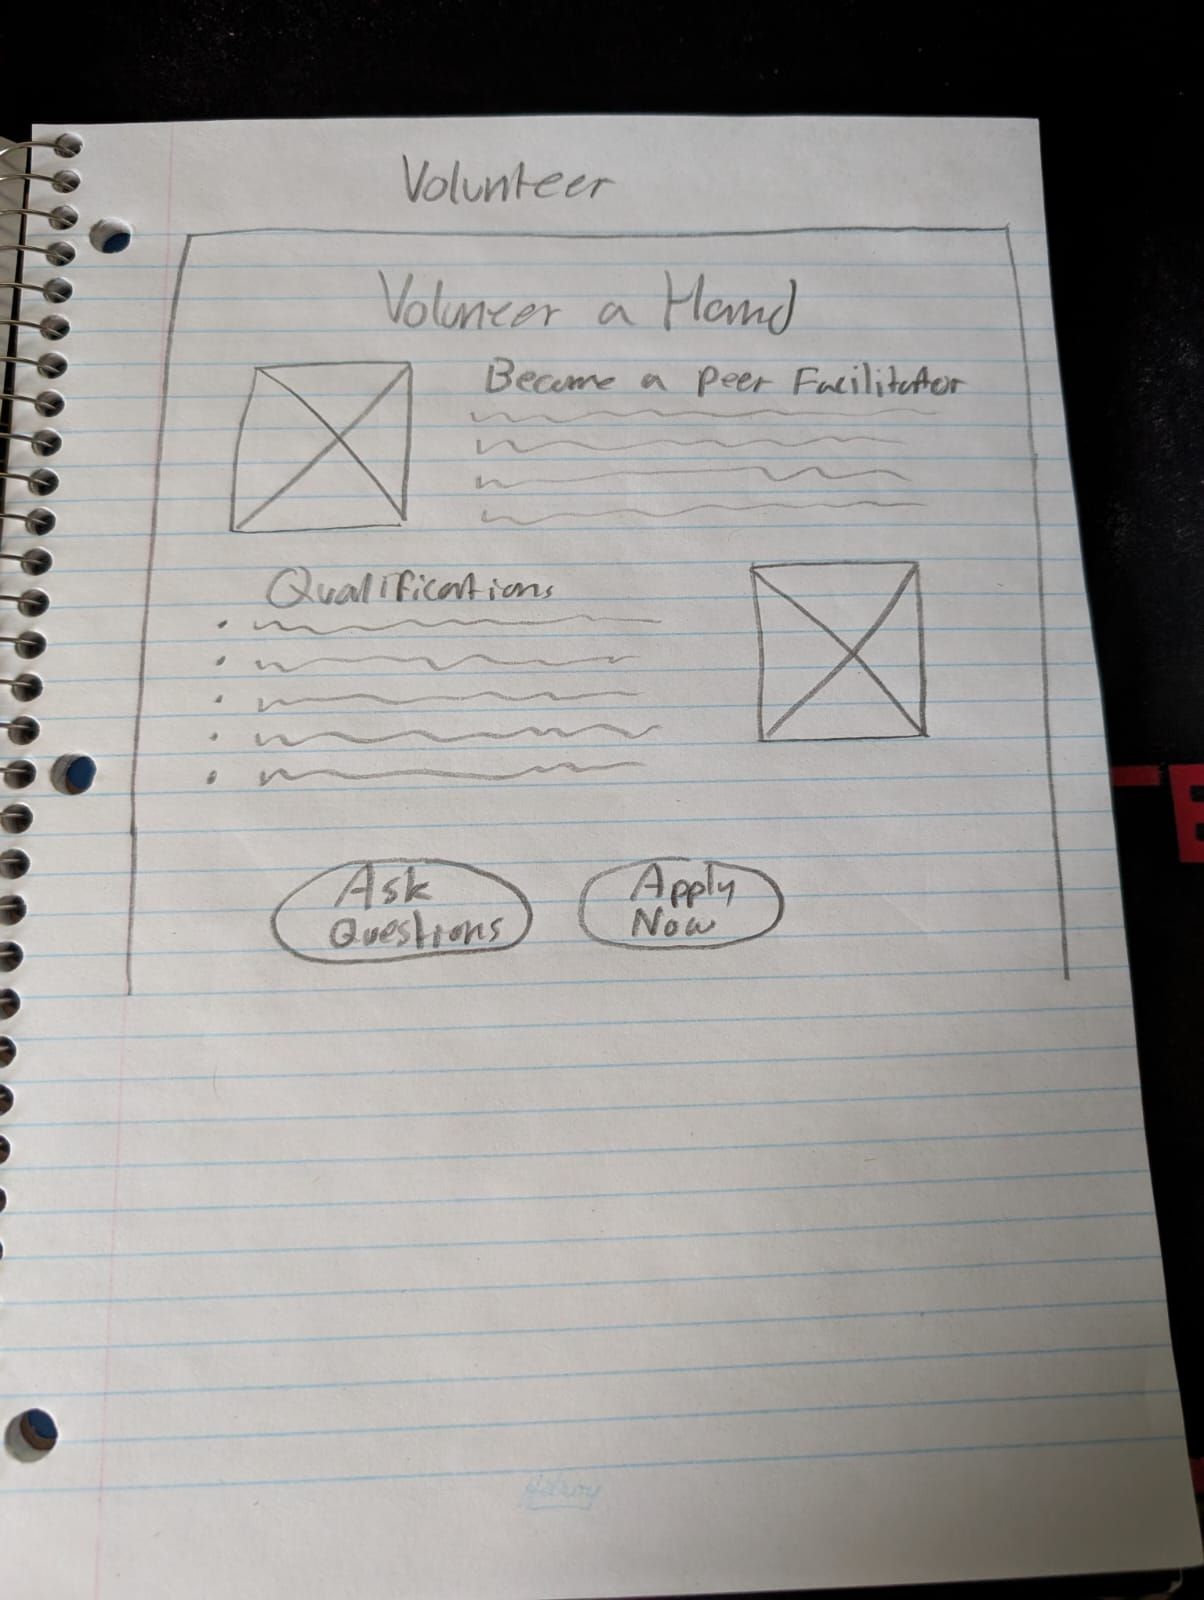 Volunteer
Volunteer a Hand
Become a Peer Facilitator
Qualifications
Ask
Questions
Apply
Now
Hilroy